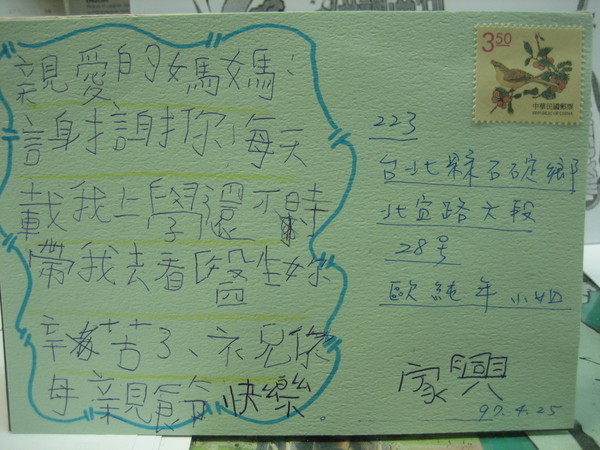 親愛的媽媽：
謝謝你每天
載我上學還不時
帶我去看醫生妳
辛苦了、祝你
母親節快樂。
3.50
中華民國郵票
REPUBLIC OF CHINA
223
台北縣石碇鄉
北宜路六段
28号
歐純年小姐
家興
97.4.25